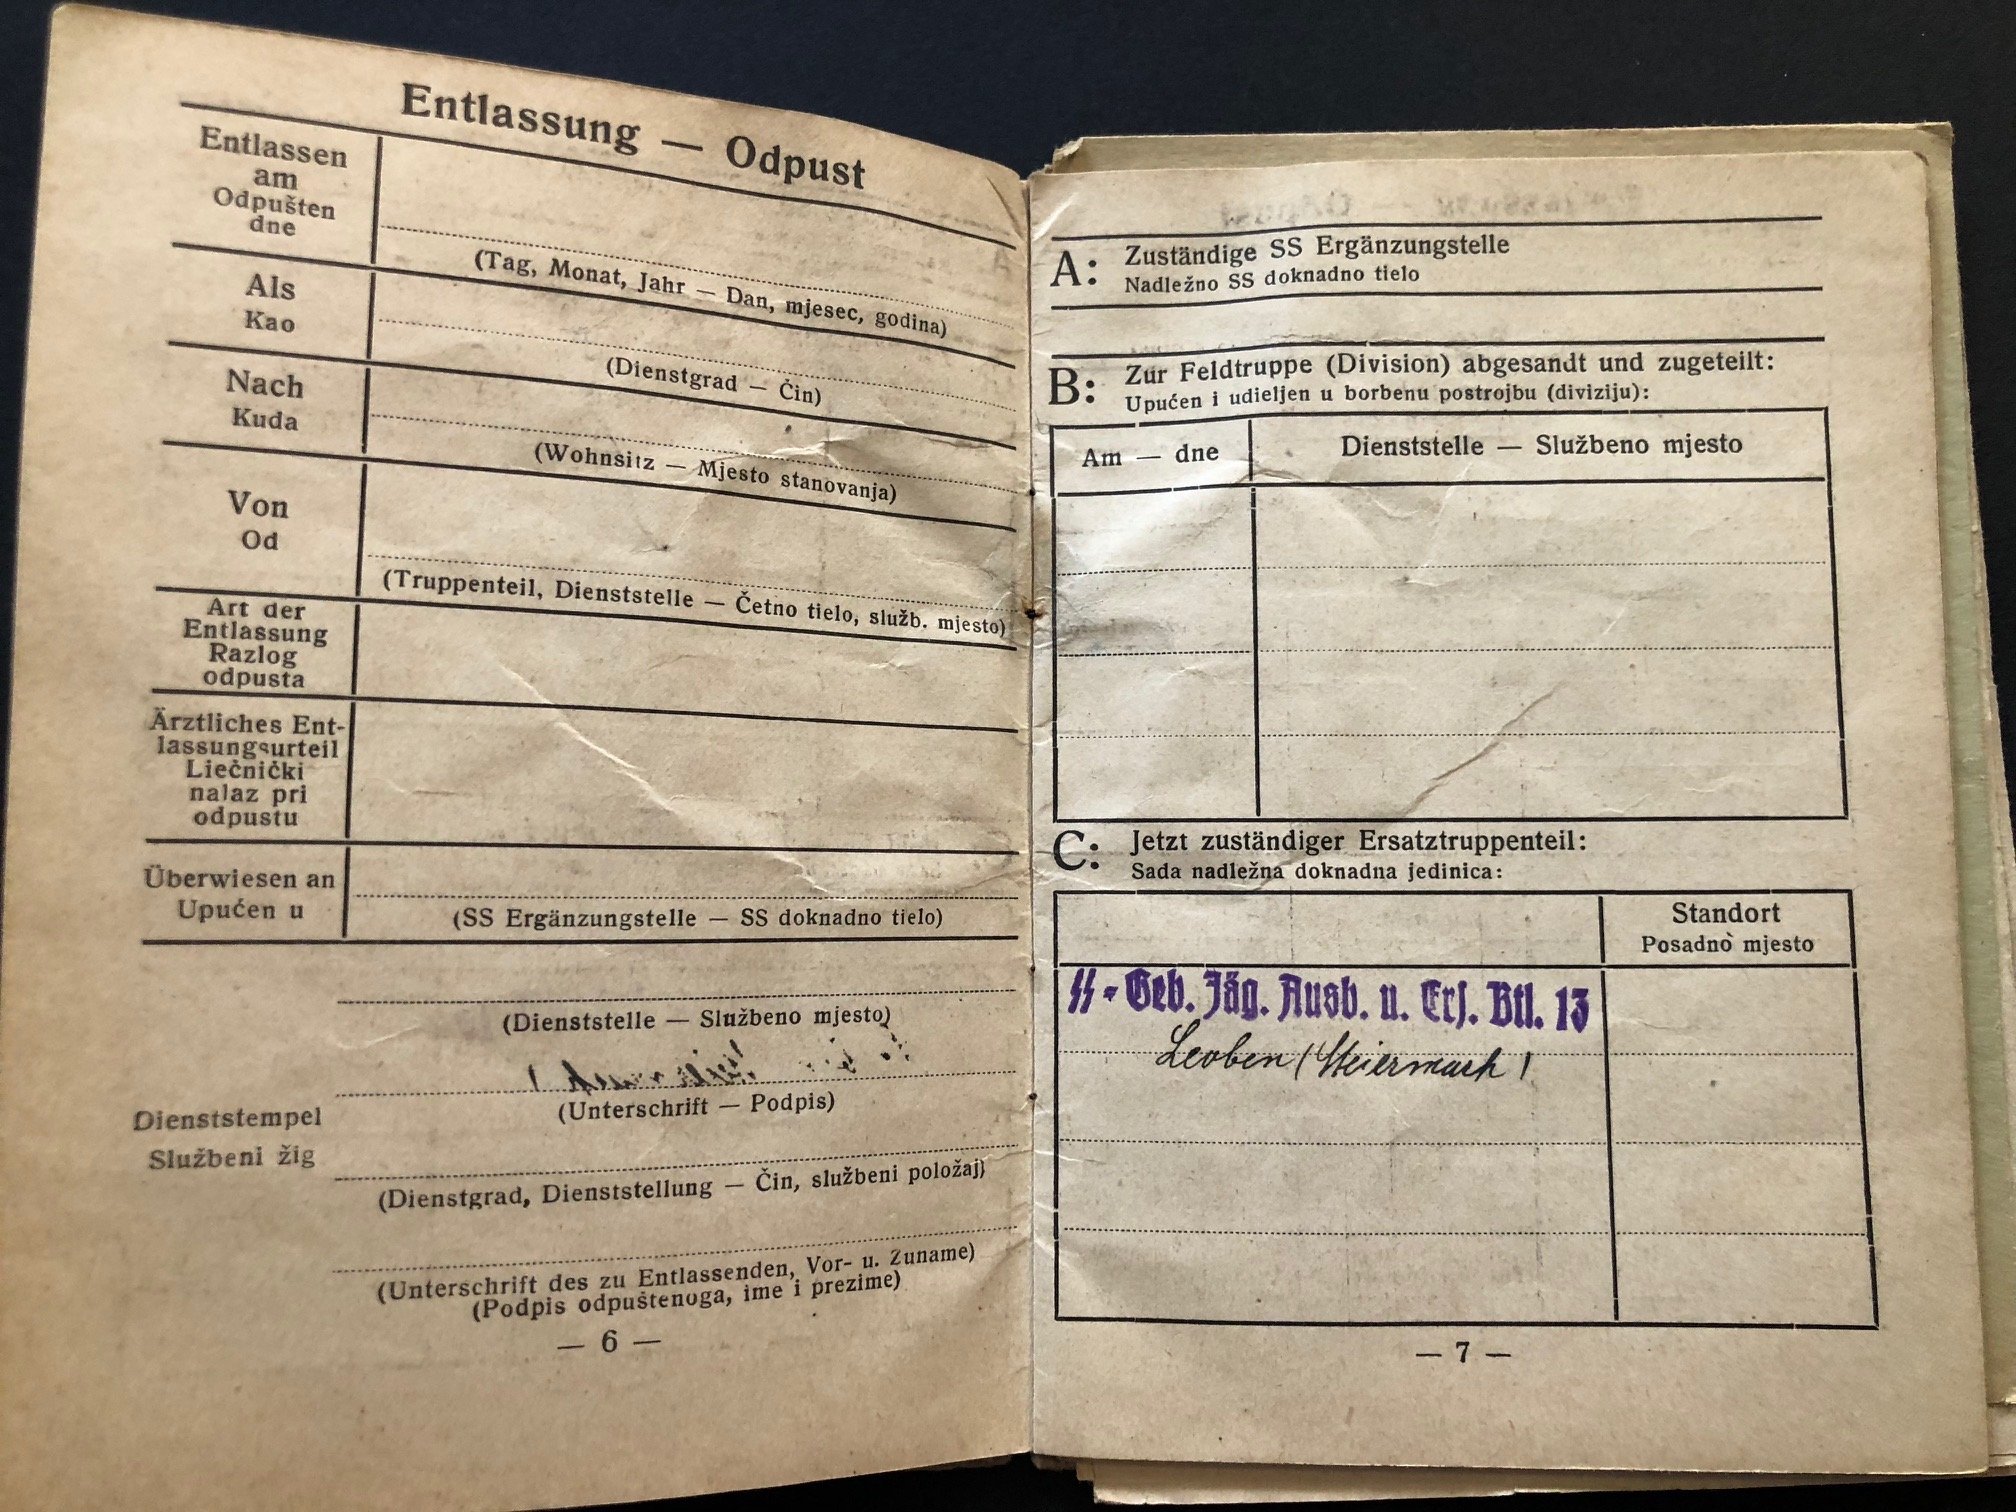 Entlassung — Odpust
Entlassen
am
Odpušten
dne
(Tag, Monat, Jahr — Dan, mjesec, godina)
Als
Kao
(Dienstgrad — Čin)
Nach
Kuda
(Wohnsitz — Mjesto stanovanja)
Von
Od
(Truppenteil, Dienststelle — Četno tielo, služb. mjesto)
Art der
Entlassung
Razlog
odpusta
Ärztliches Ent-
lassungsurteil
Liečnički
nalaz pri
odpustu
Überwiesen an
Upućen u
(SS Ergänzungstelle — SS doknadno tielo)
(Dienststelle — Službeno mjesto)
(Unterschrift — Podpis)
Dienststempel
Službeni žig
(Dienstgrad, Dienststellung — Čin, službeni položaj)
(Unterschrift des zu Entlassenden, Vor- u. Zuname)
(Podpis odpuštenoga, ime i prezime)
— 6 —
A: Zuständige SS Ergänzungstelle
Nadležno SS doknadno tielo
B: Zur Feldtruppe (Division) abgesandt und zugeteilt:
Upućen i udieljen u borbenu postrojbu (diviziju):
Am — dne
Dienststelle — Službeno mjesto
C: Jetzt zuständiger Ersatztruppenteil:
Sada nadležna doknadna jedinica:
Standort
Posadno mjesto
SS-Geb. Jäg. Ausb. u. Ers. Btl. 13
Leoben (Steiermark)
— 7 —